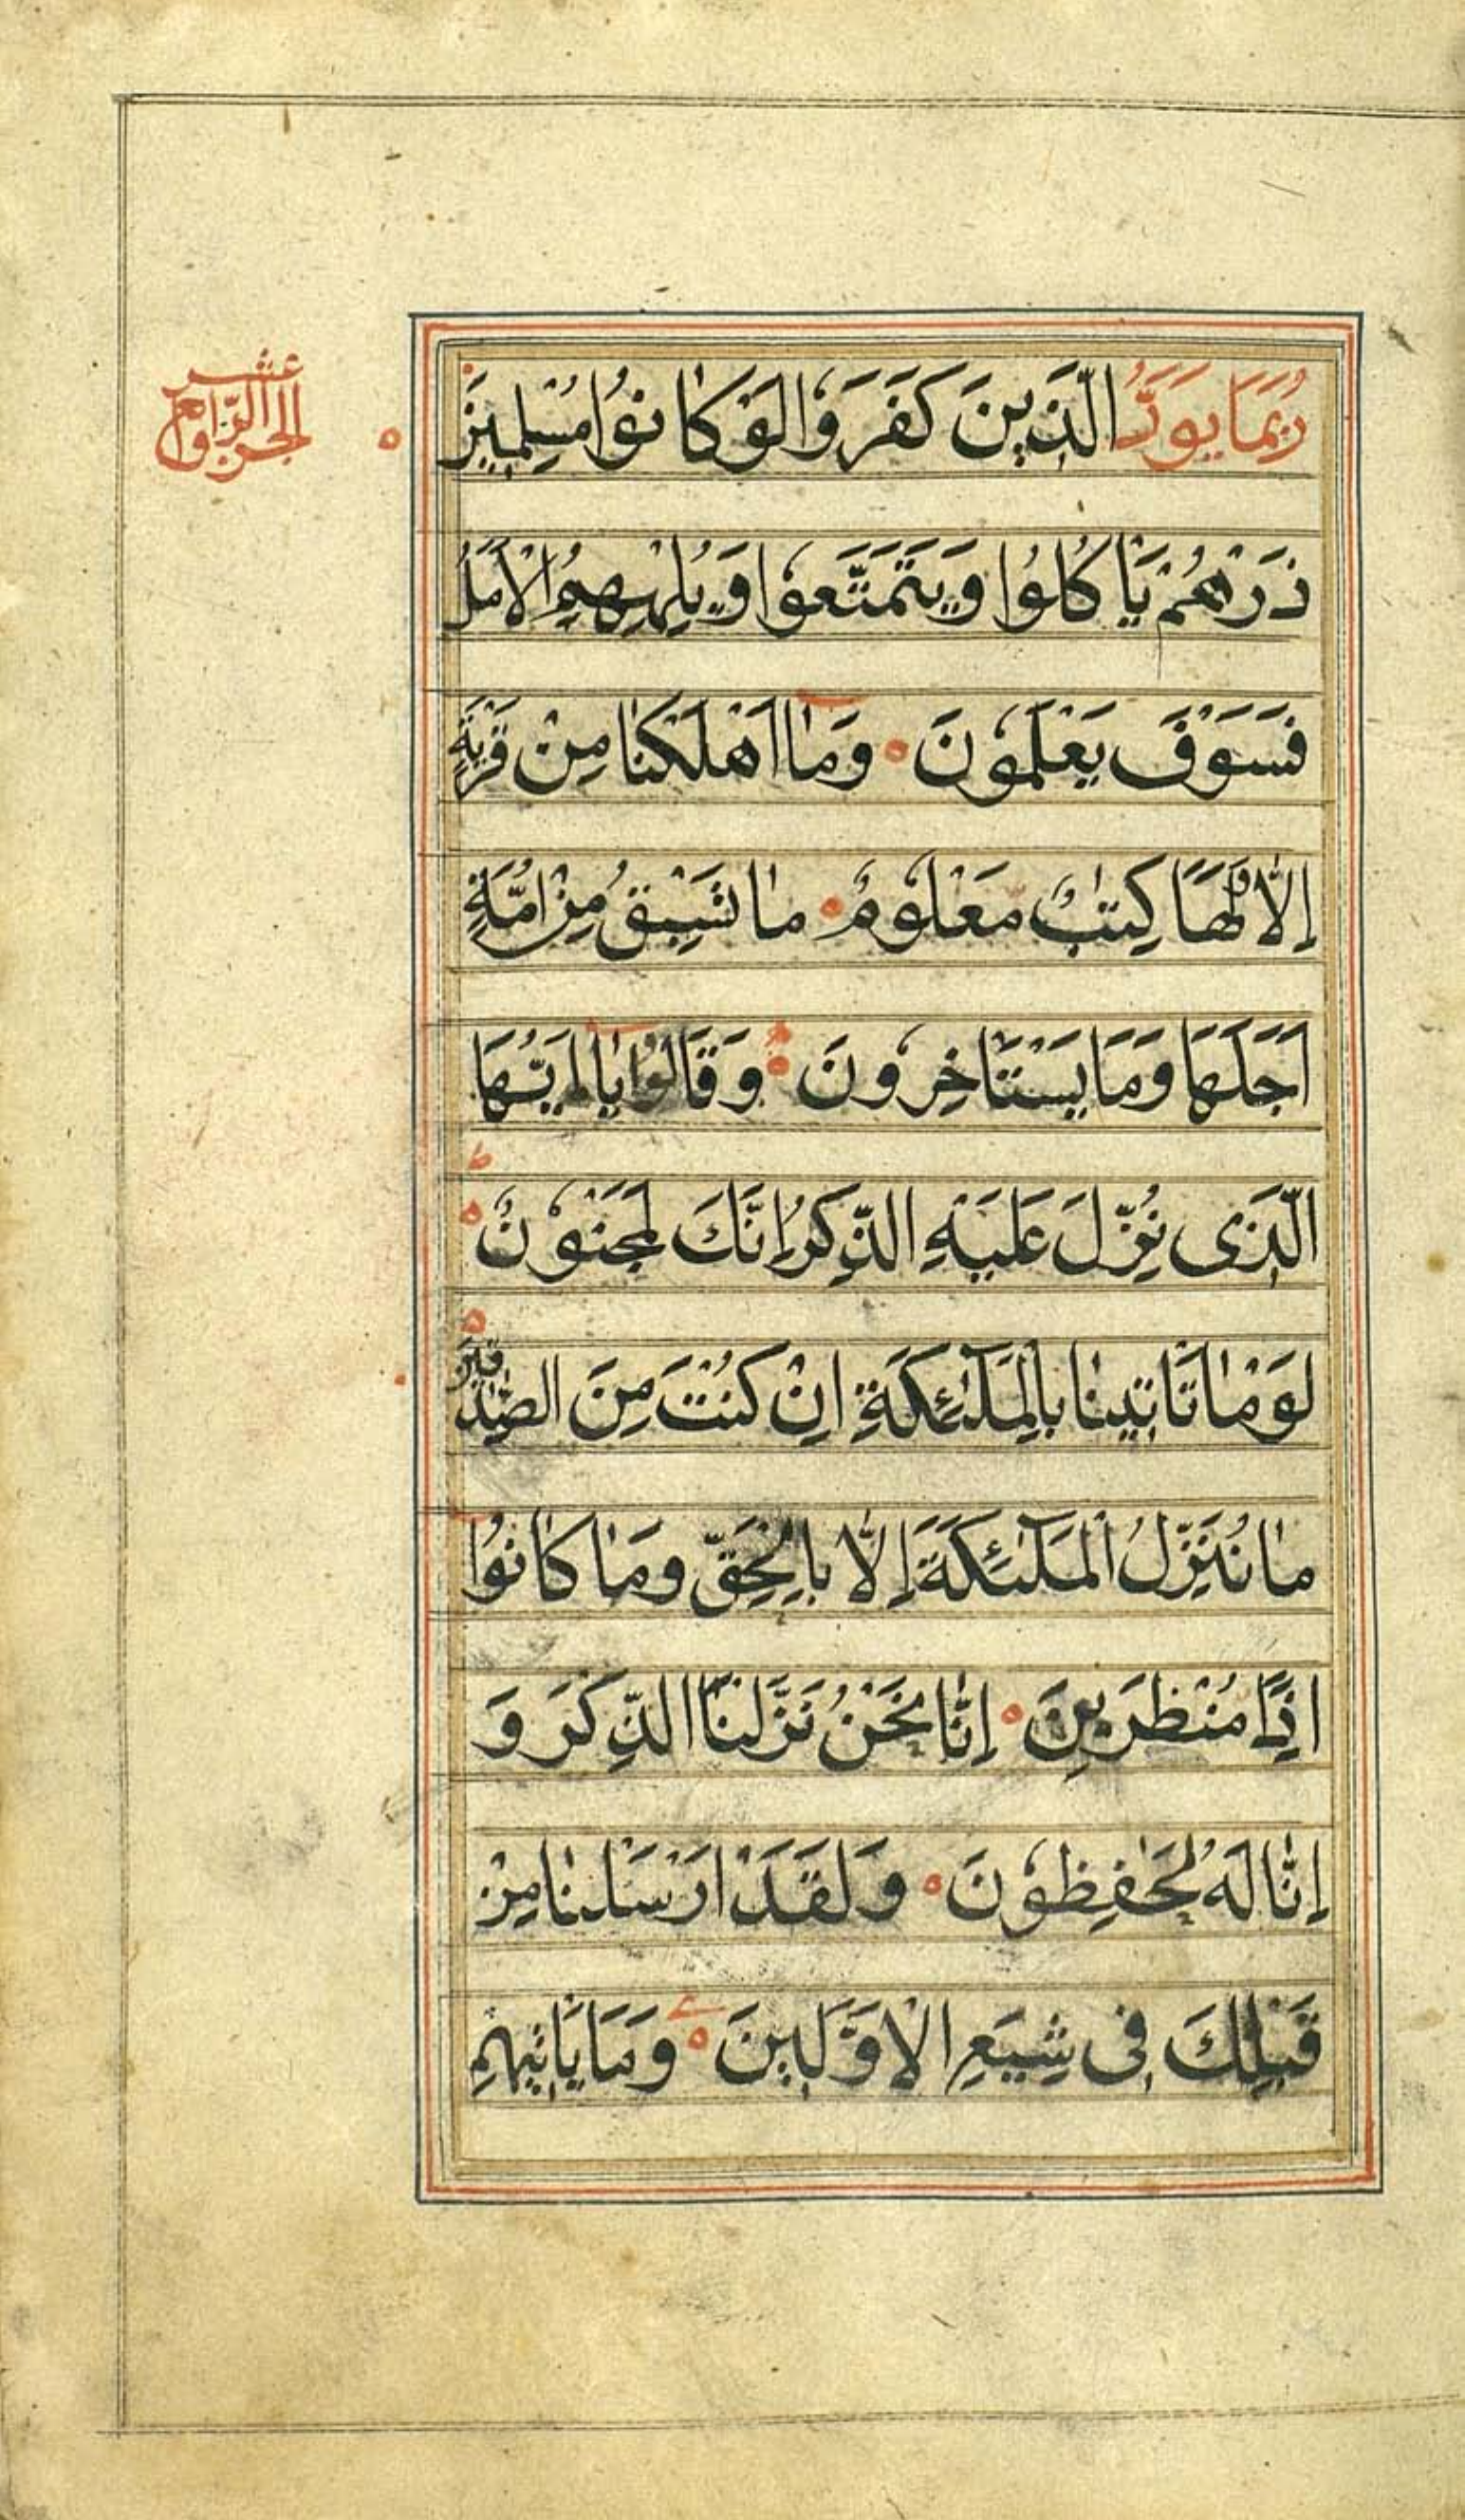 رُبَمَا يَوَدُّ الَّذِينَ كَفَرُوا لَوْ كَانُوا مُسْلِمِينَ
ذَرْهُمْ يَأْكُلُوا وَيَتَمَتَّعُوا وَيُلْهِهِمُ الْأَمَلُ
فَسَوْفَ يَعْلَمُونَ وَمَا أَهْلَكْنَا مِنْ قَرْيَةٍ
إِلَّا وَلَهَا كِتَابٌ مَعْلُومٌ مَا تَسْبِقُ مِنْ أُمَّةٍ
أَجَلَهَا وَمَا يَسْتَأْخِرُونَ وَقَالُوا يَا أَيُّهَا
الَّذِي نُزِّلَ عَلَيْهِ الذِّكْرُ إِنَّكَ لَمَجْنُونٌ
لَوْ مَا تَأْتِينَا بِالْمَلٰئِكَةِ إِنْ كُنْتَ مِنَ الصَّادِقِينَ
مَا نُنَزِّلُ الْمَلٰئِكَةَ إِلَّا بِالْحَقِّ وَمَا كَانُوا
إِذًا مُنْظَرِينَ إِنَّا نَحْنُ نَزَّلْنَا الذِّكْرَ وَ
إِنَّا لَهُ لَحَافِظُونَ وَلَقَدْ أَرْسَلْنَا مِنْ
قَبْلِكَ فِي شِيَعِ الْأَوَّلِينَ وَمَا يَأْتِيهِمْ
الجزو الرّابع عشر